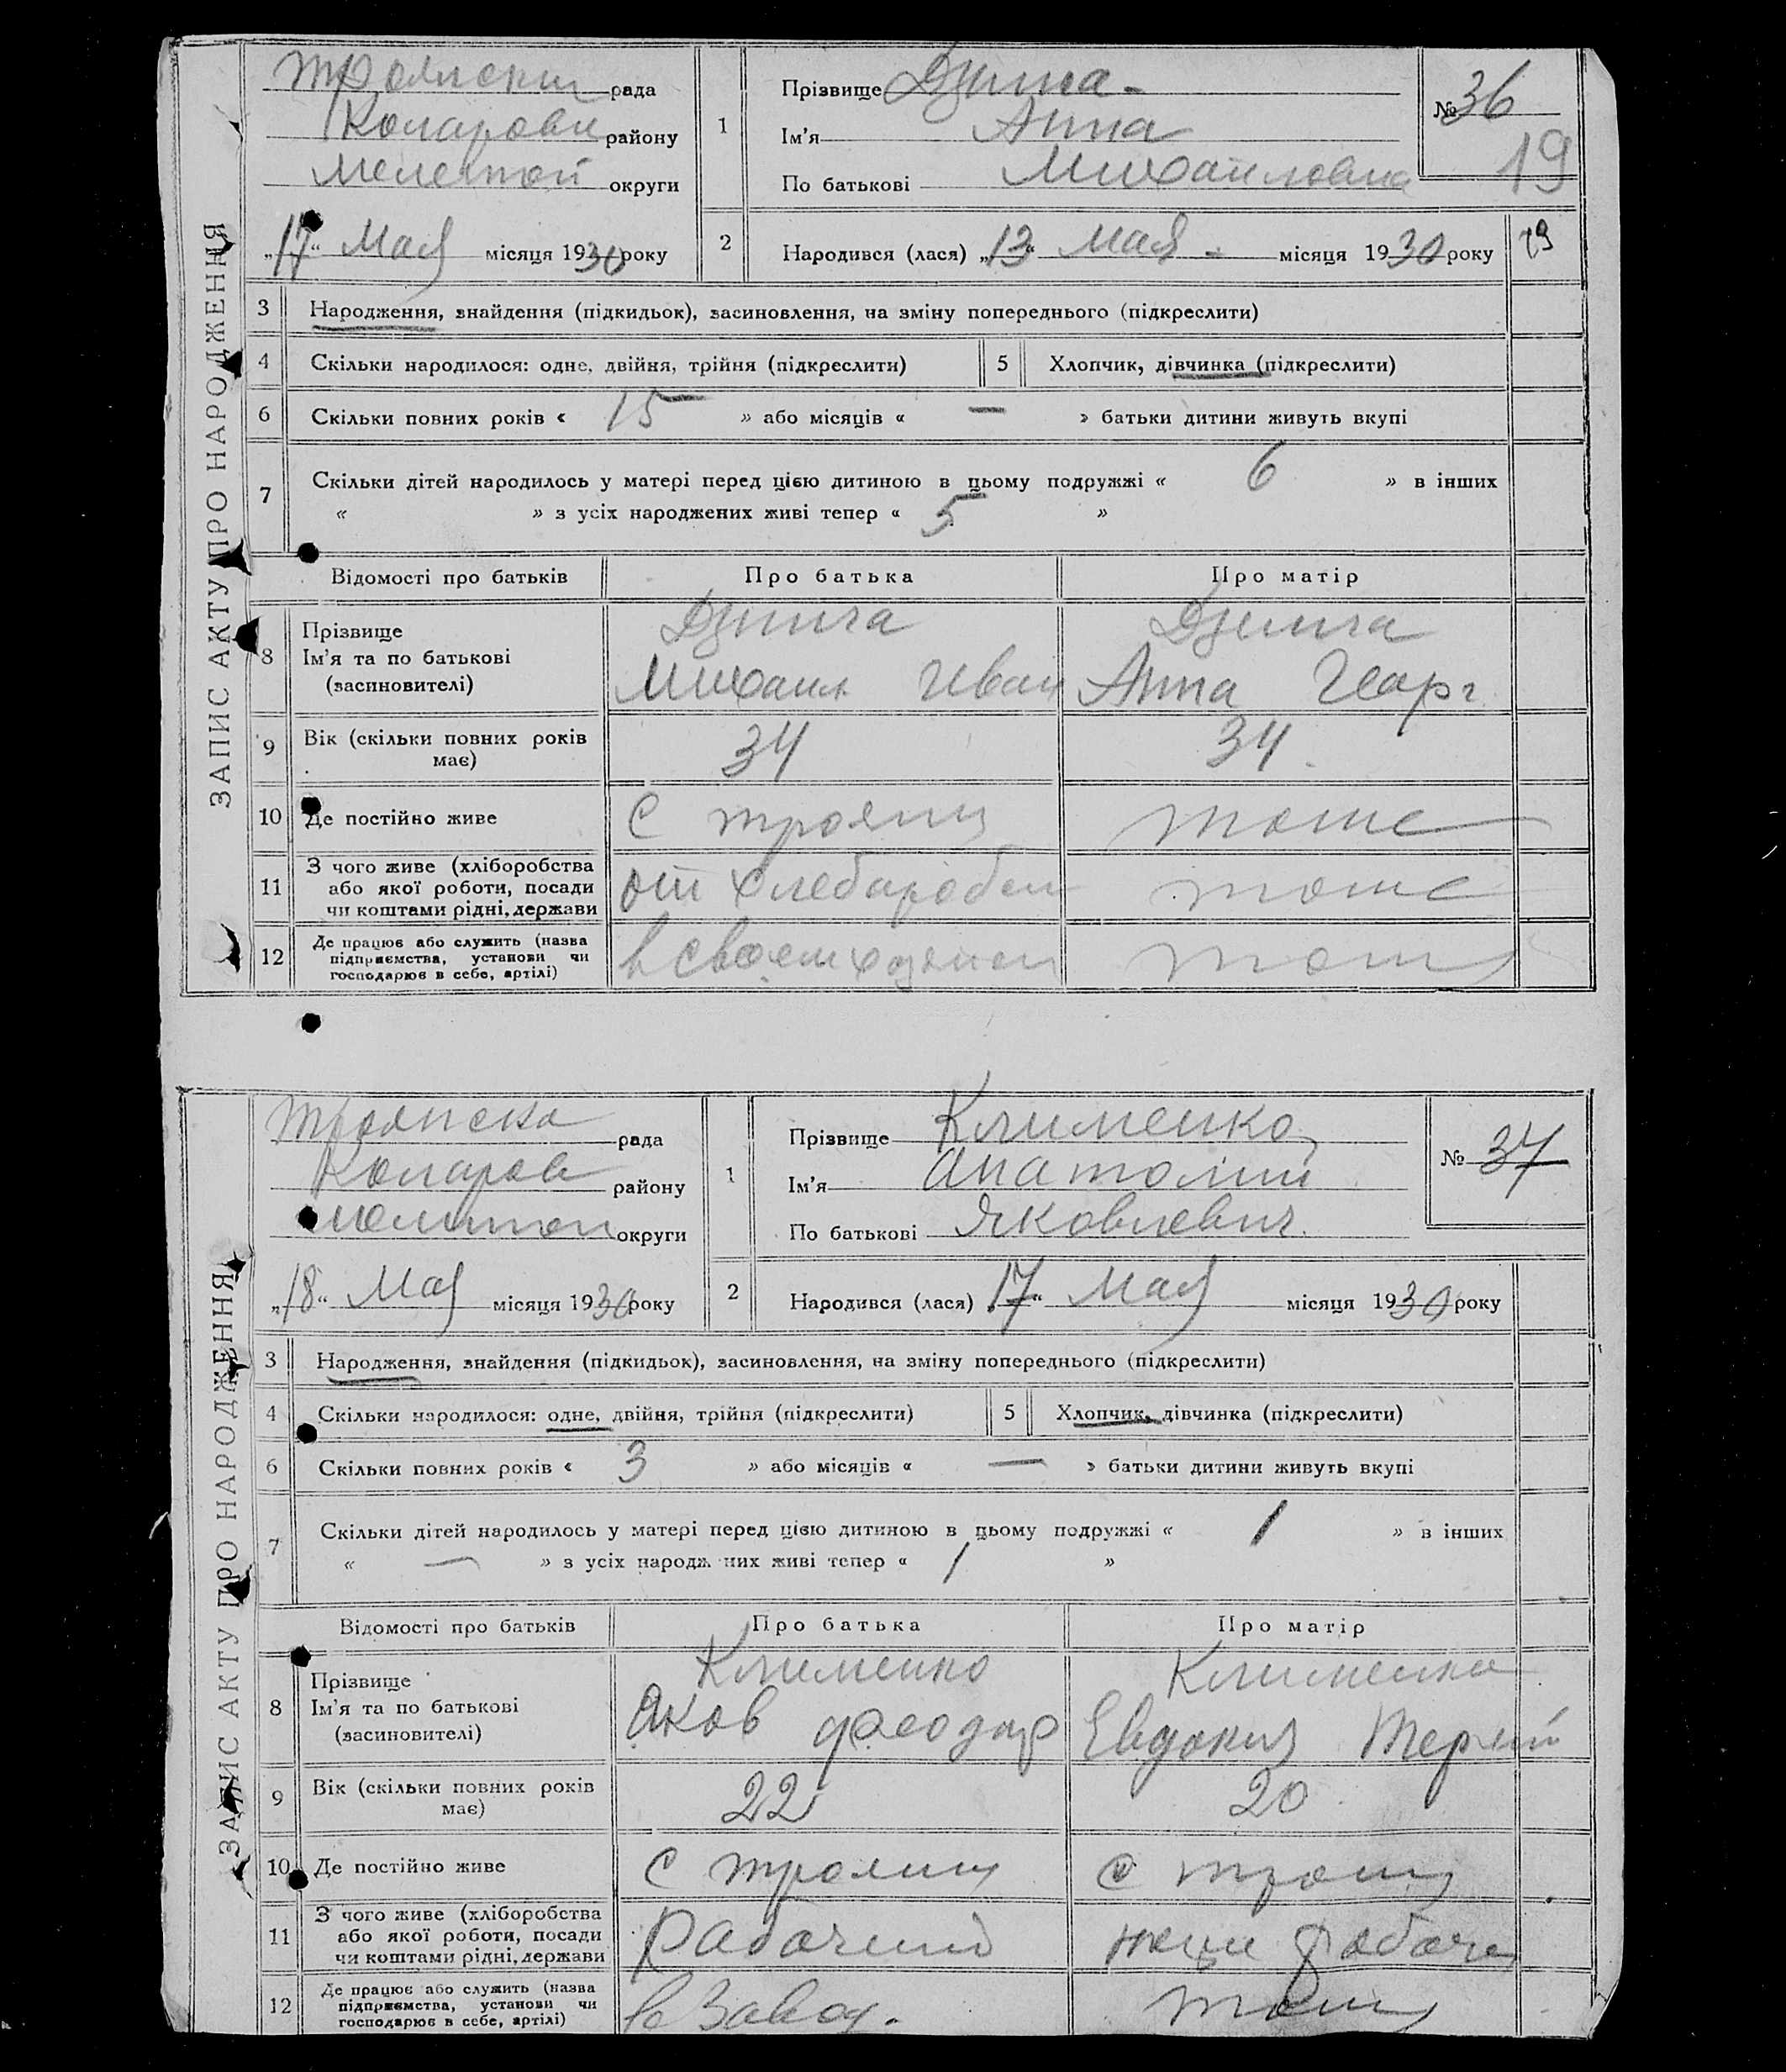 ЗАПИС АКТУ ПРО НАРОДЖЕННЯ
Троянски рада
Коларовск району
Мелетоп округи
„17“ Мая місяця 1930 року
1
Прізвище Дзинга
Ім'я Анна
По батькові Михайловна
№ 36
19
2
Народився (лася) „13“ Мая місяця 1930 року
3 Народження, знайдення (підкидьок), засиновлення, на зміну попереднього (підкреслити)
4 Скільки народилося: одне, двійня, трійня (підкреслити) 5 Хлопчик, дівчинка (підкреслити)
6 Скільки повних років « 15 » або місяців « — » батьки дитини живуть вкупі
7 Скільки дітей народилось у матері перед цією дитиною в цьому подружжі « 6 » в інших
« » з усіх народжених живі тепер « 5 »
Відомості про батьків Про батька Про матір
8 Прізвище
Ім'я та по батькові
(засиновителі)
Дзинга
Михаил Иван
Анна Георг
9 Вік (скільки повних років має) 34 34
10 Де постійно живе с Трояны тоже
11 З чого живе (хліборобства
або якої роботи, посади
чи коштами рідні, держави
от тоже
12 Де працює або служить (назва
підприємства, установи чи
господарює в себе, артілі)
в своем
ЗАПИС АКТУ ПРО НАРОДЖЕННЯ
Троянска рада
Коларов району
округи
„18“ Мая місяця 1930 року
1
Прізвище Клименко
Ім'я Анатолий
По батькові Яковлевич
№ 37
2
Народився (лася) „17“ Мая місяця 1930 року
3 Народження, знайдення (підкидьок), засиновлення, на зміну попереднього (підкреслити)
4 Скільки народилося: одне, двійня, трійня (підкреслити) 5 Хлопчик, дівчинка (підкреслити)
6 Скільки повних років « 3 » або місяців « — » батьки дитини живуть вкупі
7 Скільки дітей народилось у матері перед цією дитиною в цьому подружжі « 1 » в інших
« — » з усіх народж них живі тепер « 1 »
Відомості про батьків Про батька Про матір
8 Прізвище
Ім'я та по батькові
(засиновителі)
Клименко Клименко
Яков Феодор Евдокия
9 Вік (скільки повних років має) 22 20
10 Де постійно живе с Трояны с
11 З чого живе (хліборобства
або якої роботи, посади
чи коштами рідні, держави
Рабочий
12 Де працює або служить (назва
підприємства, установи чи
господарює в себе, артілі)
в Завод.